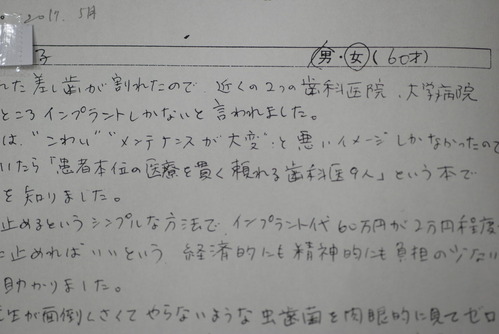 2017. 5月
子 男・女(60才)
れた差し歯が割れたので、近くの2つの歯科医院、大学病院
ところインプラントしかないと言われました。
は、"こわい" "メンテケンスが大変"と悪いイメージしかなかったので
いたら「患者本位の医療を貫く頼れる歯科医9人」という本で
を知りました。
止めるというシンプルな方法で、インプラント代60万円が2万円程度
に止めればいいという、経済的にも精神的にも負担の少ない
助かりました。
生が面倒くさくてやらないような虫歯菌を肉眼的に見てゼロ